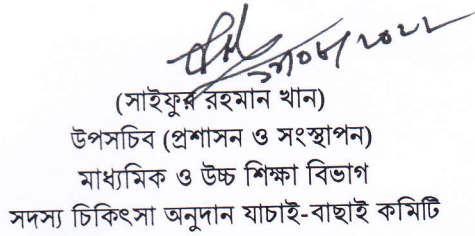 (সাইফুর রহমান খান)
উপসচিব (প্রশাসন ও সংস্থাপন)
মাধ্যমিক ও উচ্চ শিক্ষা বিভাগ
সদস্য চিকিৎসা অনুদান যাচাই-বাছাই কমিটি